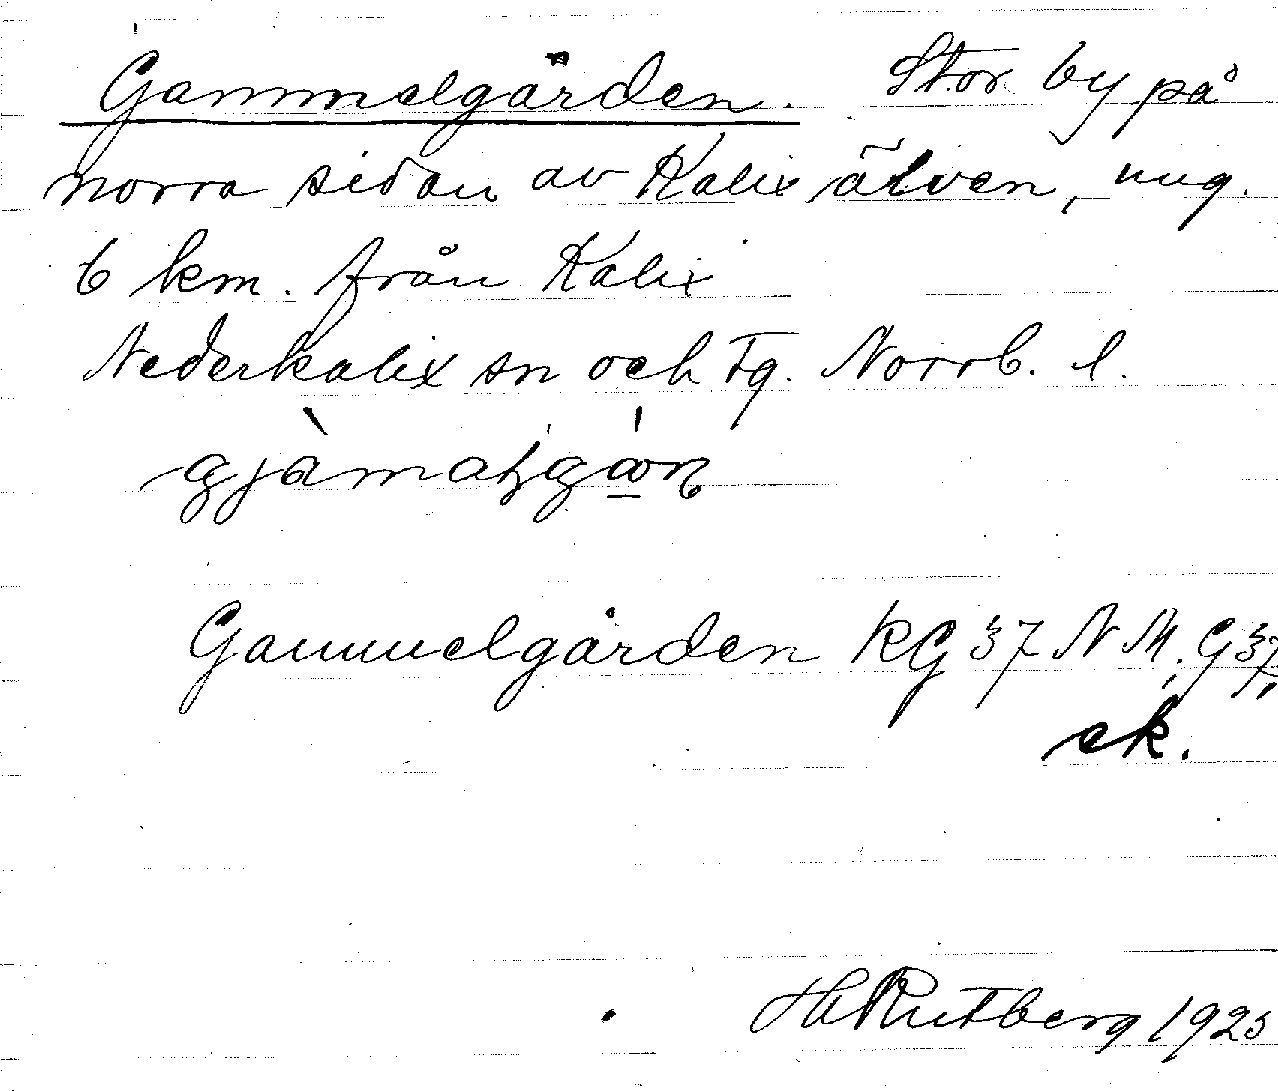 Gammelgården. Stor by på
norra sidan av Kalix älven, ung.
6 km. från Kalix
Nederkalix sn och tg. Norrb. l.
Gammelgården KG 37 N M. G 37
ek.
H Rutberg 1925